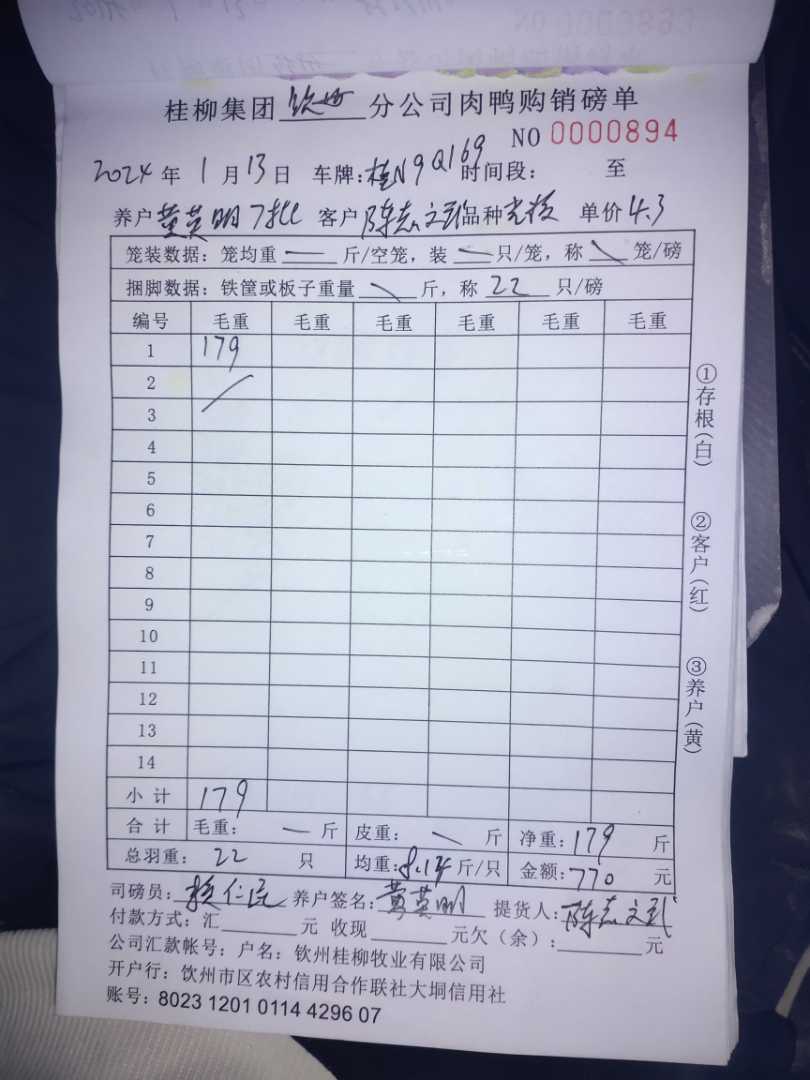 桂柳集团 钦州 分公司肉鸭购销磅单
NO 0000894
2024 年 1 月 13 日 车牌:桂N9Q169 时间段: 至
养户 黄英明 7批 客户 陈志文 品种 单价 4.3
笼装数据: 笼均重 — 斤/空笼, 装 — 只/笼, 称 \ 笼/磅
捆脚数据: 铁筐或板子重量 \ 斤, 称 22 只/磅
编号 毛重 毛重 毛重 毛重 毛重 毛重
1 179
2 /
3
4
5
6
7
8
9
10
11
12
13
14
小 计 179
合 计 毛重: — 斤 皮重: \ 斤 净重: 179 斤
总羽重: 22 只 均重: 8.14 斤/只 金额: 770 元
司磅员: 仁民 养户签名: 黄英明 提货人: 陈志文
付款方式: 汇 元 收现 元欠(余): 元
公司汇款帐号: 户名: 钦州桂柳牧业有限公司
开户行: 钦州市区农村信用合作联社大垌信用社
账号: 8023 1201 0114 4296 07
①存根(白)
②客户(红)
③养户(黄)